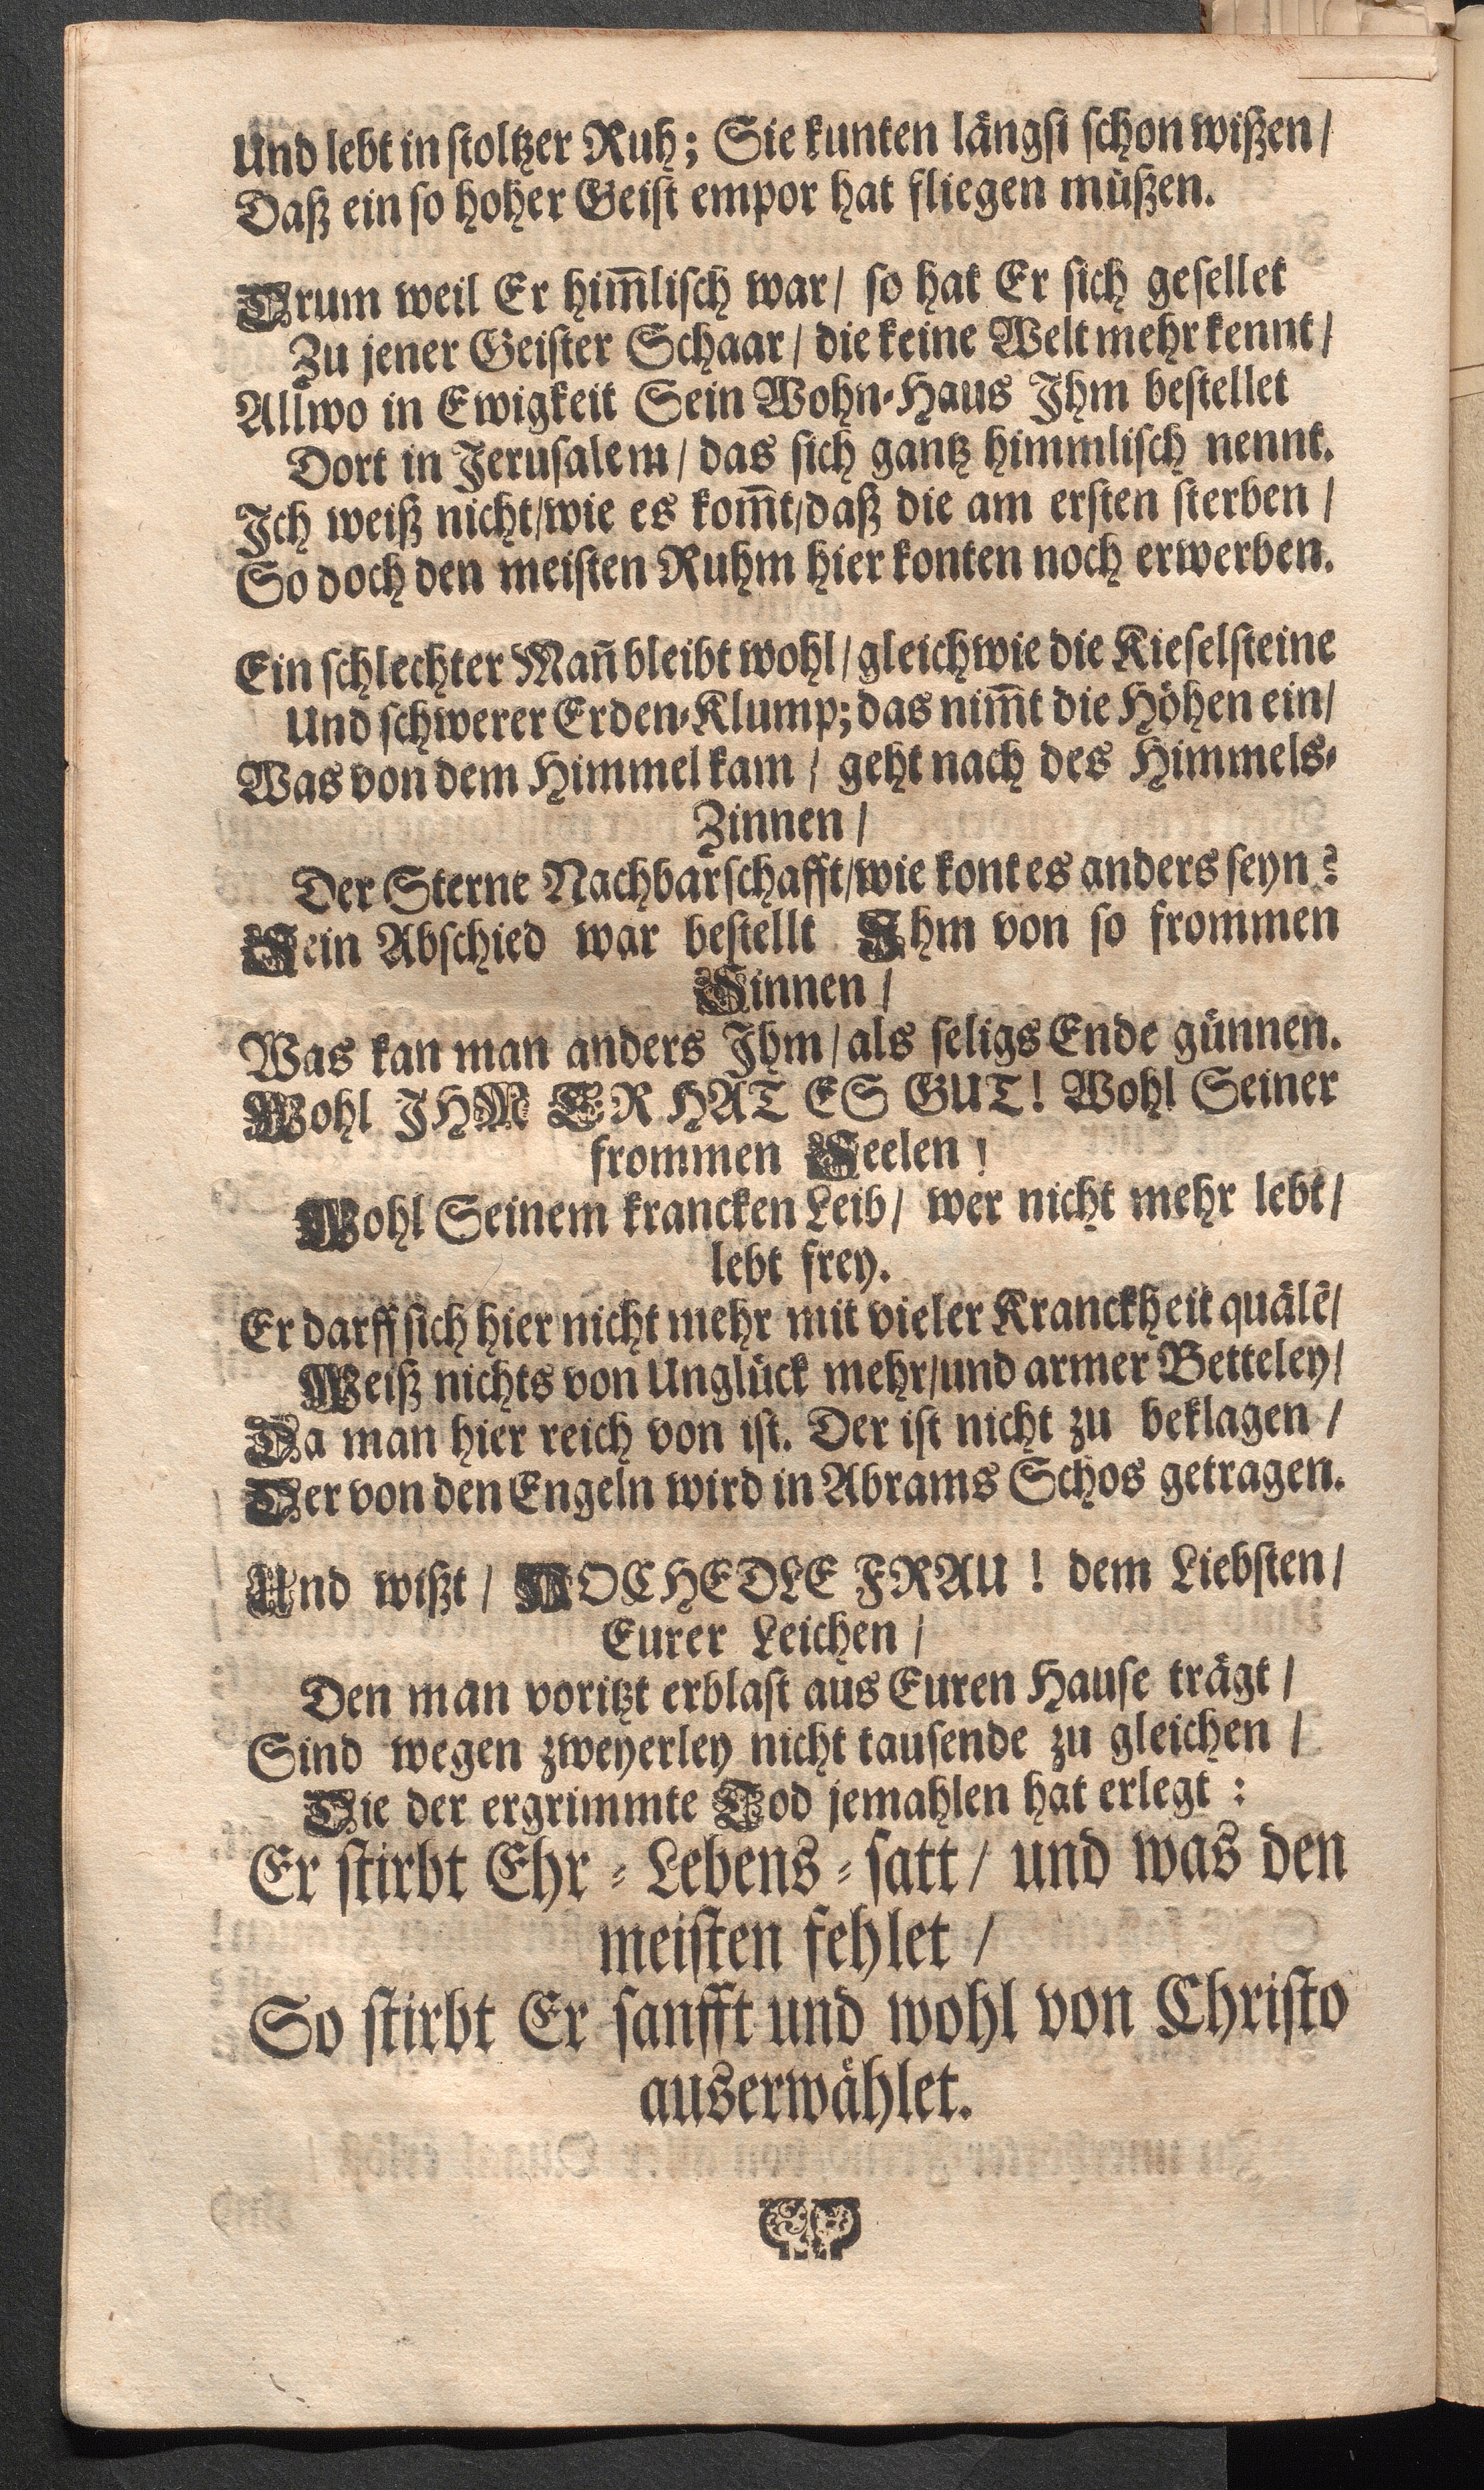 Und lebt in stoltzer Ruh; Sie kunten längst schon wißen/
Daß ein so hoher Geist empor hat fliegen müßen.
Drum weil Er him̄lisch war/ so hat Er sich gesellet
Zu jener Geister Schaar/ die keine Welt mehr kennt/
Allwo in Ewigkeit Sein Wohn-Haus Ihm bestellet
Dort in Jerusalem/ das sich gantz himmlisch nennt.
Ich weiß nicht/wie es kom̄t/daß die am ersten sterben/
So doch den meisten Ruhm hier konten noch erwerben.
Ein schlechter Man̄ bleibt wohl/gleichwie die Kieselsteine
Und schwerer Erden-Klump; das nim̄t die Höhen ein/
Was von dem Himmel kam/ geht nach des Himmels-
Zinnen/
Der Sterne Nachbarschafft/wie kont es anders seyn?
Sein Abschied war bestellt Ihm von so frommen
Sinnen/
Was kan man anders Ihm/als seligs Ende günnen.
Wohl IHM ER HAT ES GUT! Wohl Seiner
frommen Seelen!
Wohl Seinem krancken Leib/ wer nicht mehr lebt/
lebt frey.
Er darff sich hier nicht mehr mit vieler Kranckheit quälē/
Weiß nichts von Unglück mehr/und armer Betteley/
Da man hier reich von ist. Der ist nicht zu beklagen/
Der von den Engeln wird in Abrams Schos getragen.
Und wißt/ HOCHEDLE FRAU! dem Liebsten/
Eurer Leichen/
Den man voritzt erblast aus Euren Hause trägt/
Sind wegen zweyerley nicht tausende zu gleichen/
Die der ergrimmte Tod jemahlen hat erlegt:
Er stirbt Ehr-Lebens-satt/ und was den
meisten fehlet/
So stirbt Er sanfft und wohl von Christo
auserwählet.